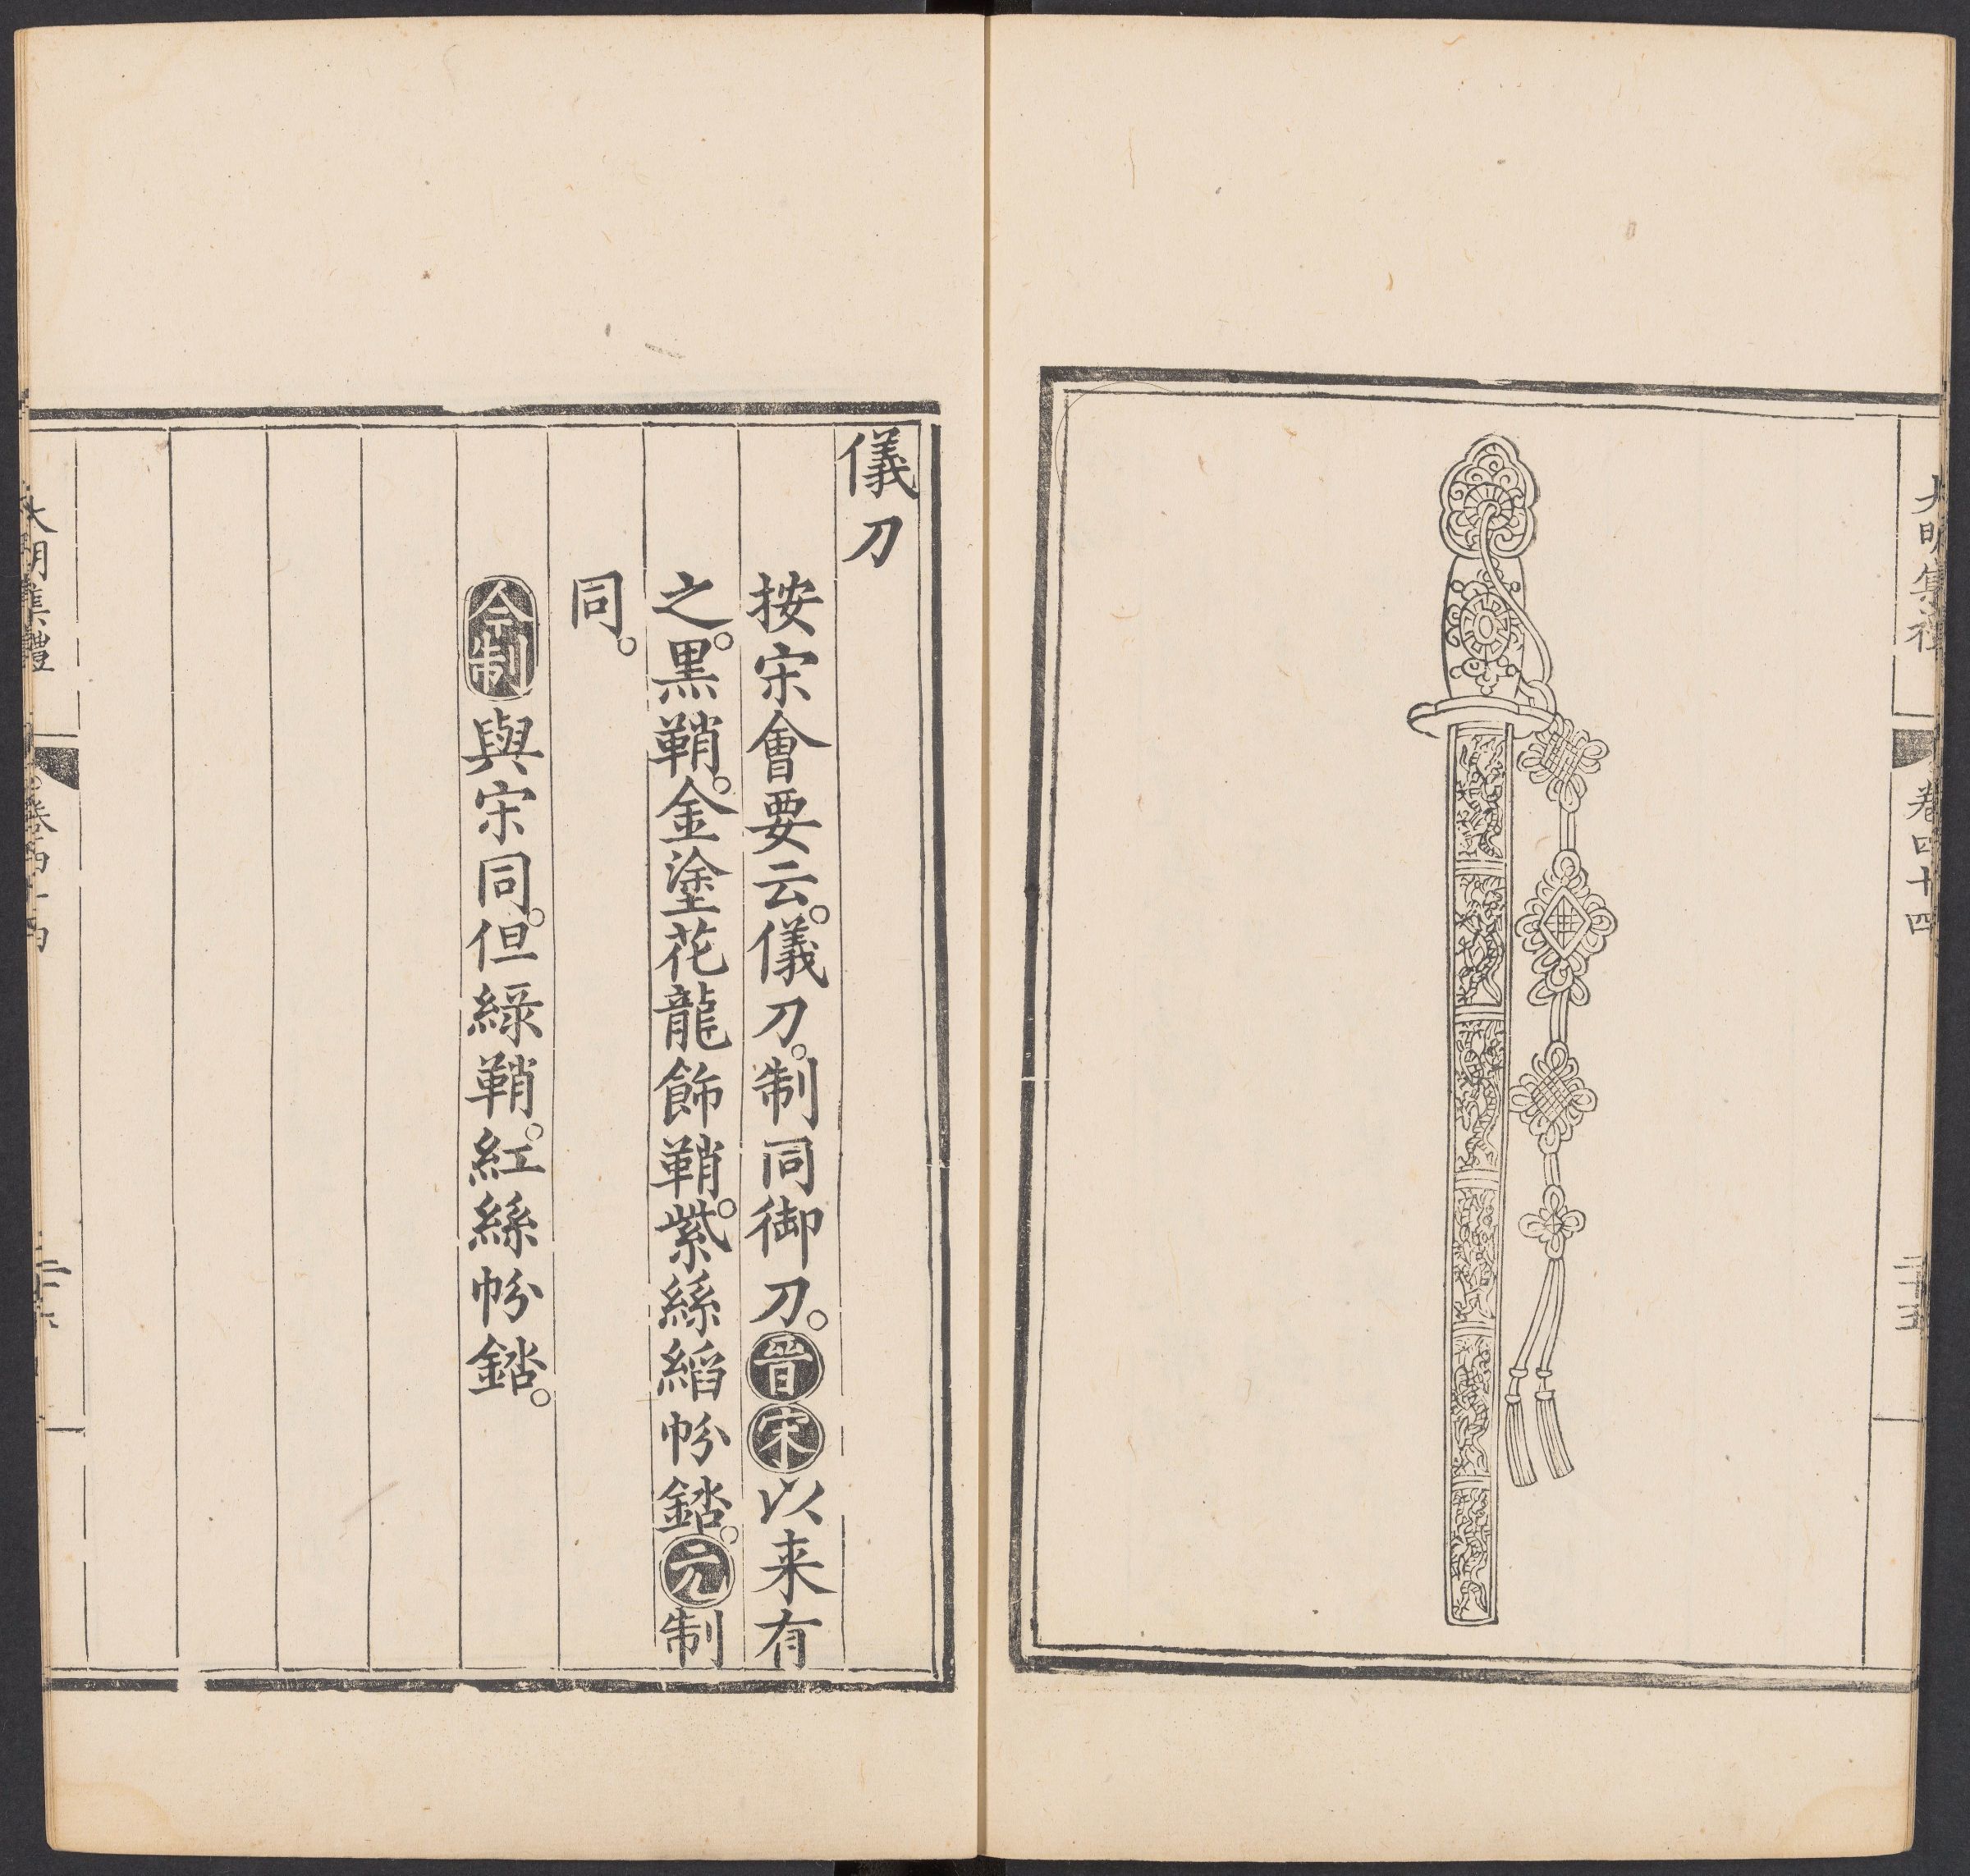 大明集禮
卷四十四
二十五
儀刀
按宋會要云。儀刀。制同御刀。晉宋以来有
之。黑鞘。金塗花龍飾鞘。紫絲縚帉錔。元制
同。
今制與宋同。但綠鞘。紅絲帉錔。